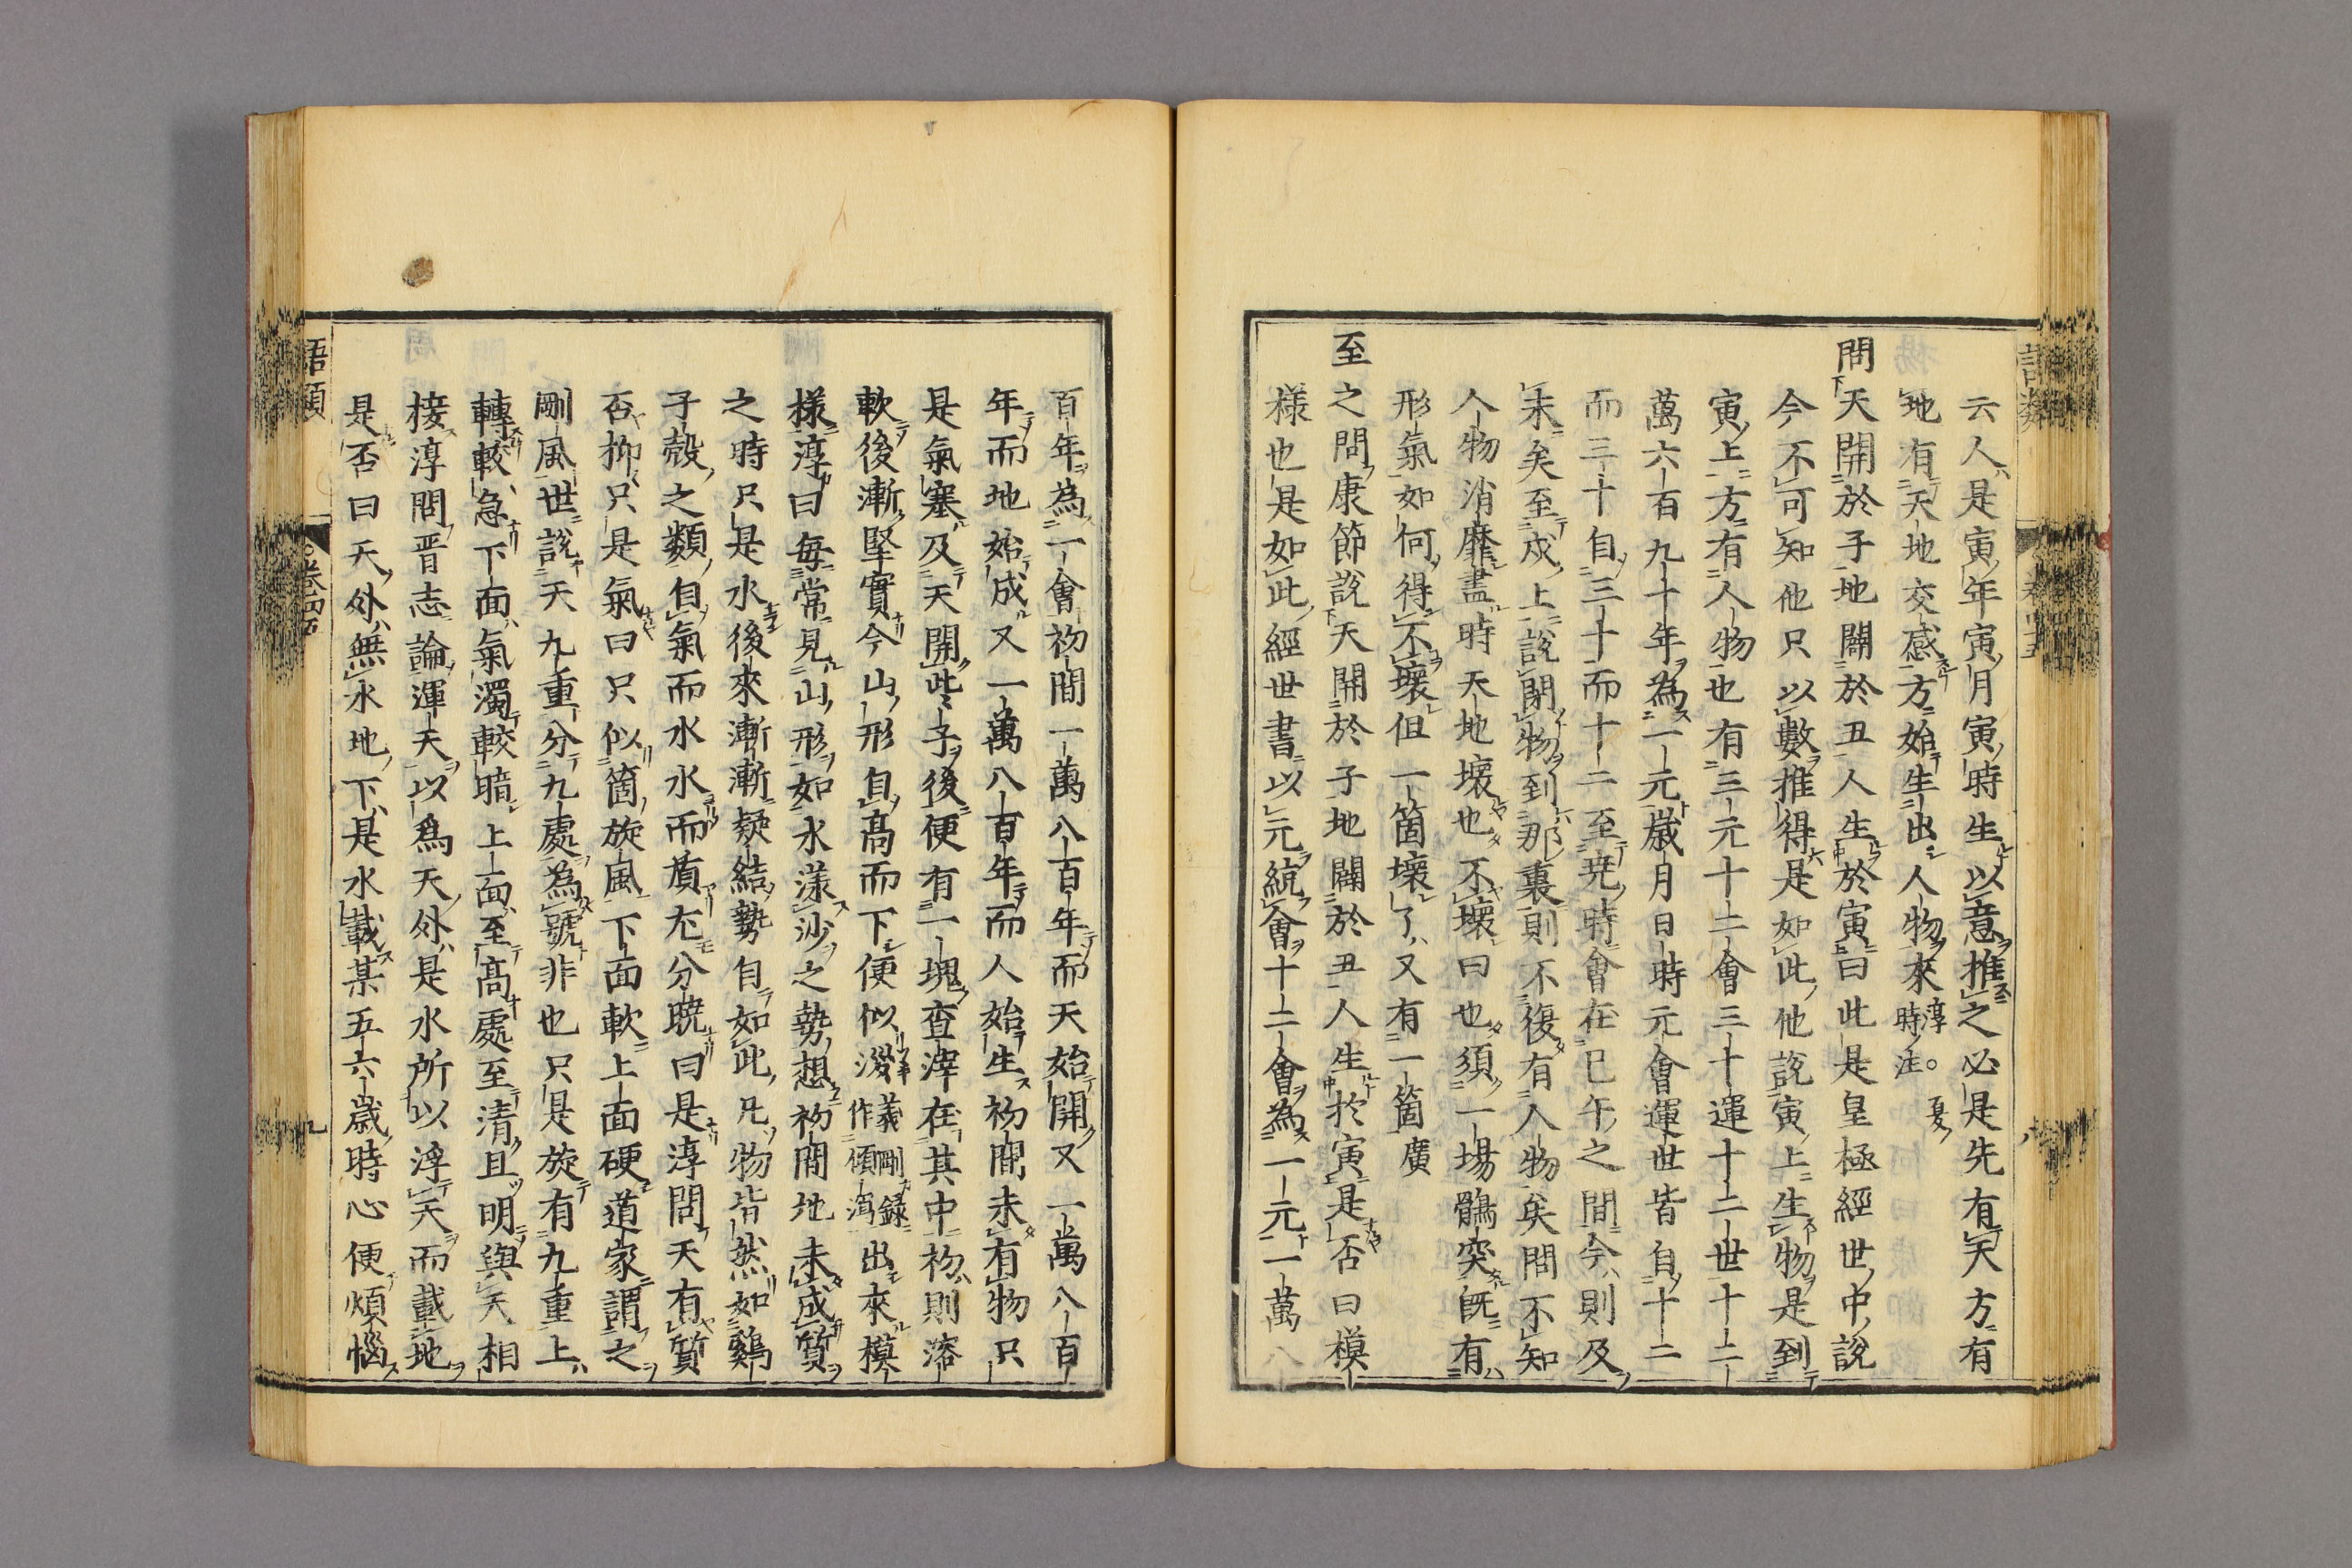 云人是寅年寅月寅時生以意推之必是先有天方有
地有天地交感方始生出人物來淳時注。夏
問天開於子地闢於丑人生於寅曰此是皇極經世中說
今不可知他只以數推得是如此他說寅上生物是到
寅上方有人物也有三元十二會三十運十二世十二
萬六百九十年為一元歲月日時元會運世皆自十二
而三十自三十而十二至堯時會在巳午之間今則及
未矣至戌上說閉物到那裏則不復有人物矣問不知
人物消靡盡時天地壞也不壞曰也須一場鶻突旣有
形氣如何得不壞但一箇壞了又有一箇廣
至之問康節說天開於子地闢於丑人生於寅是否曰模
様也是如此經世書以元統會十二會為一元一萬八
百年為一會初間一萬八百年而天始開又一萬八百
年而地始成又一萬八百年而人始生初間未有物只
是氣塞及天開此子後便有一塊查滓在其中初則溶
軟後漸堅實今山形自高而下便似㵗義剛録作傾瀉出來模
様淳曰每常見山形如水漾沙之勢想初間地未成質
之時只是水後來漸漸凝結勢自如此凡物皆然如鷄
子殼之類自氣而水水而質尤分曉曰是淳問天有質
否抑只是氣曰只似箇旋風下面軟上面硬道家謂之
剛風世說天九重分九處為號非也只是旋有九重上
轉較急下面氣濁較暗上面至高處至清且明與天相
接淳問晋志論渾天以為天外是水所以浮天而載地
是否曰天外無水地下是水載某五六歲時心便煩惱
語類
卷四五
九